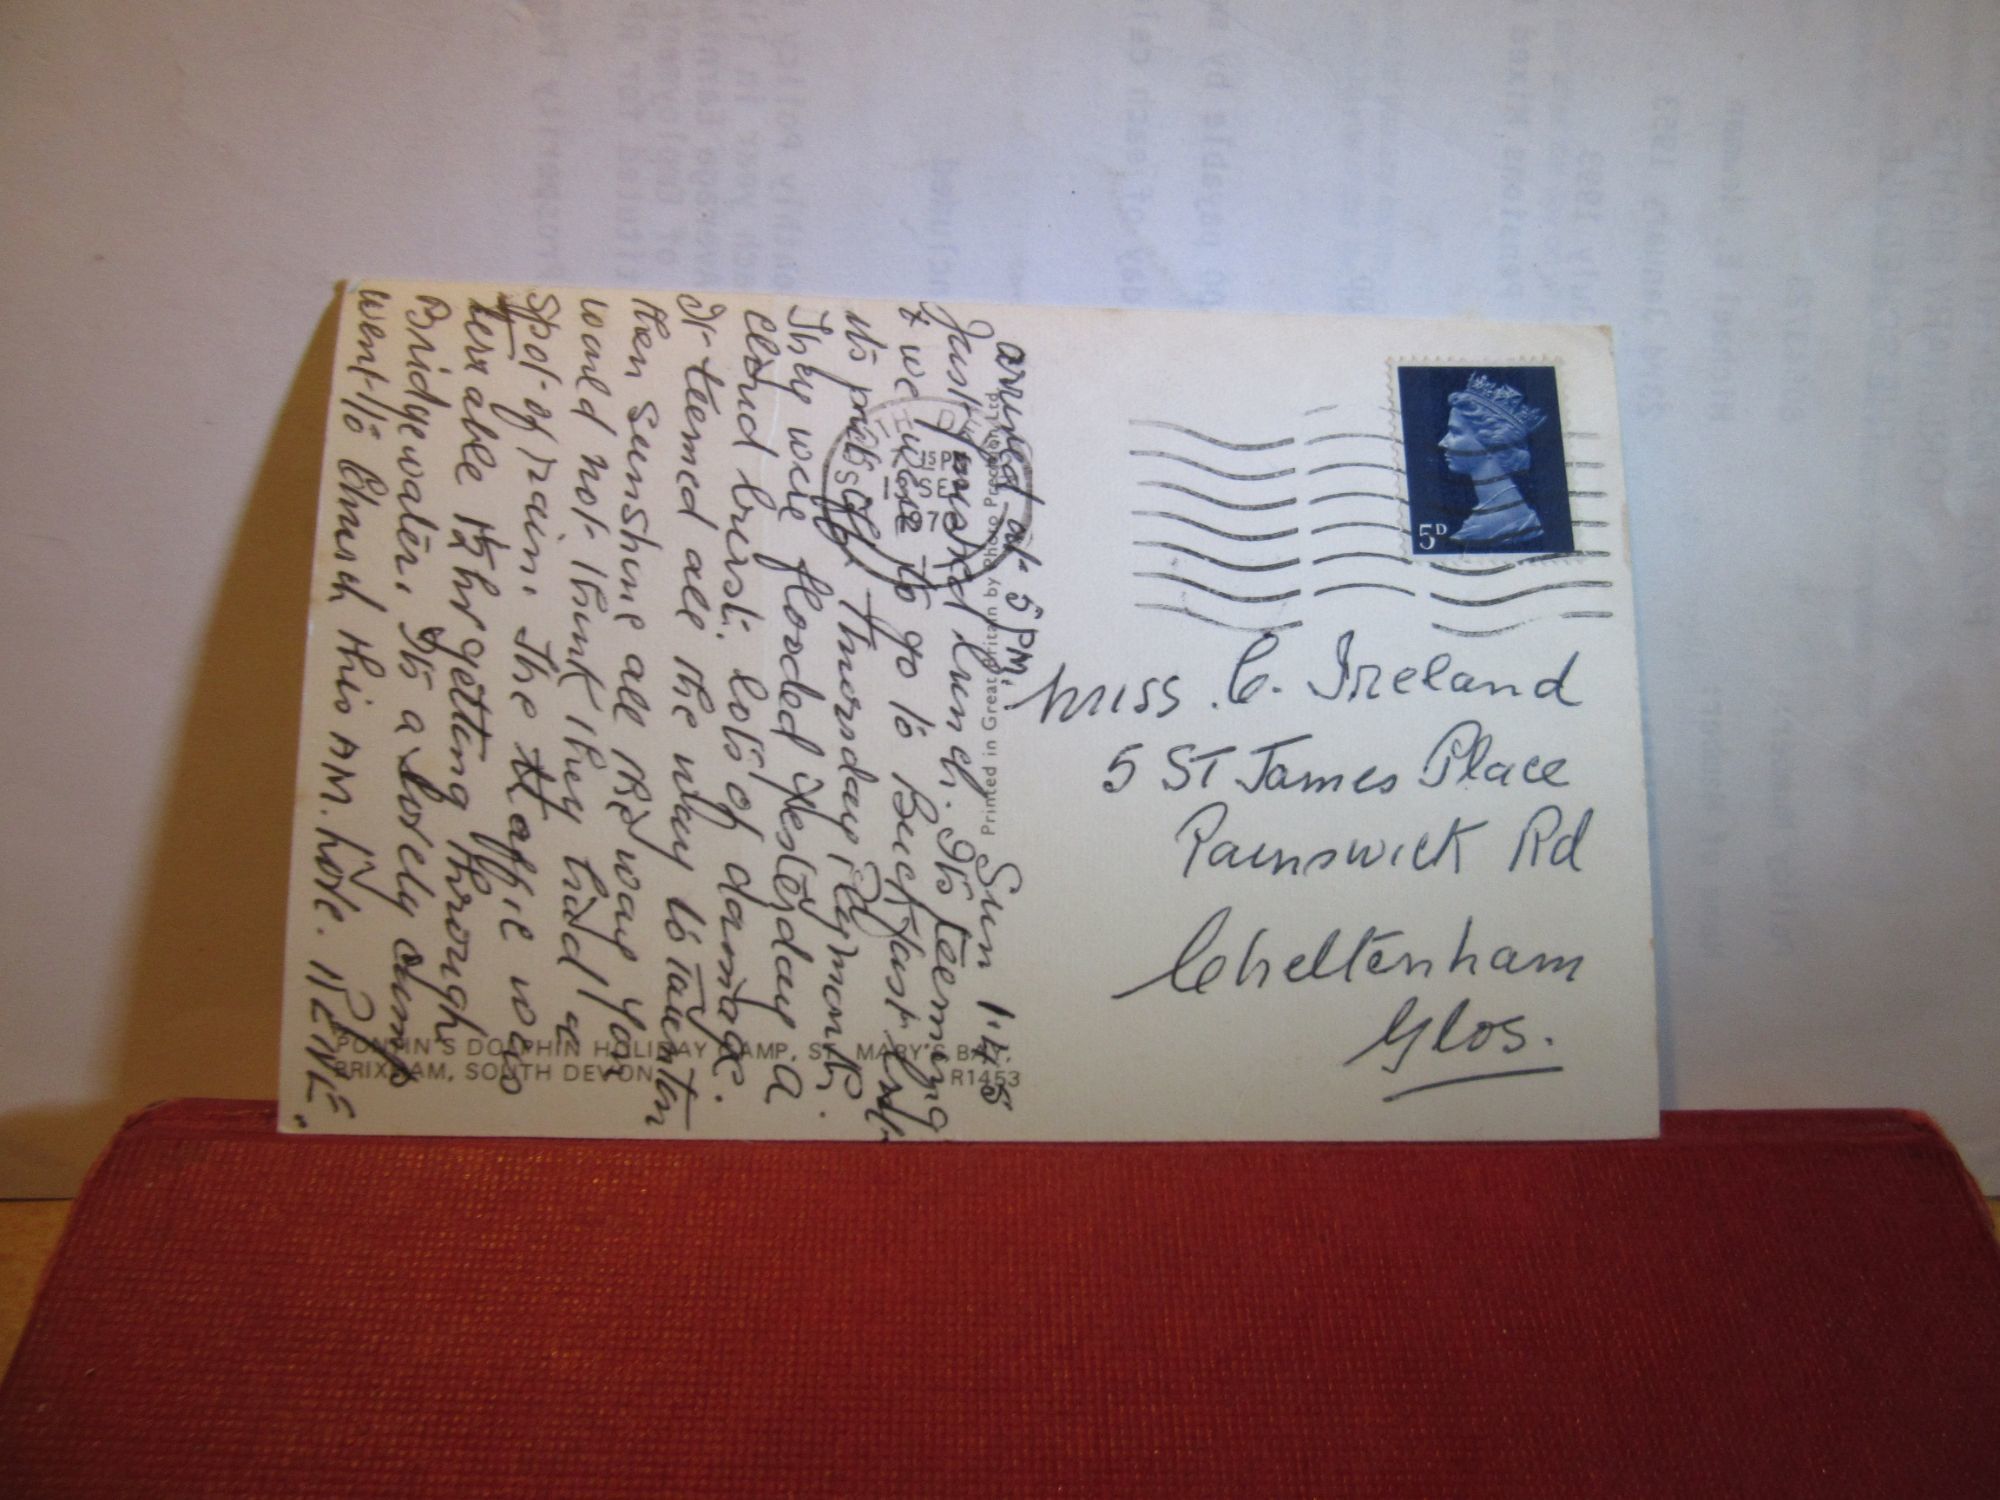 arrived at 5 PM.
Sun 1.45
Just missed lunch. Its teeming
& we were to go to Buckfast but
its put off Thursday Plymouth.
They were flooded yesterday a
cloud burst. lots of damage.
It teemed all the way to Taunton
then Sunshine all the way you
would not think they had a
Spot of rain. The traffic was
terrable 1½ hr getting through
Bridgewater. Its a lovely Camp
went to Church this AM. love.
Miss. C. Ireland
5 ST James Place
Painswick Rd
Cheltenham
Glos.
5D
Printed in Great Britain by Photo Precision Ltd
PONTIN'S DOLPHIN HOLIDAY CAMP, ST. MARY'S BAY,
BRIXHAM, SOUTH DEVON R1453